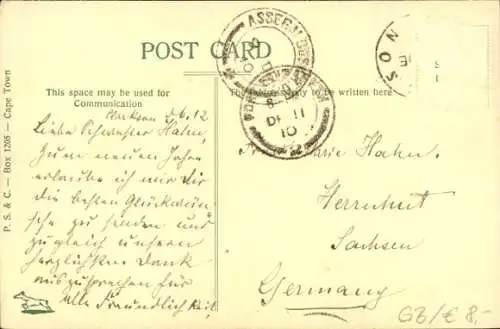 POST CARD
This space may be used for
Communication
The address only to be written here
P. S. & C. — Box 1205 — Cape Town
ASSER
NOS
11
10
26.12
Liebe Schwester Hahn,
Zum neuen Jahre
erlaube ich mir Dir
die besten Glückwün-
sche zu senden und
zugleich unseren
herzlichsten Dank
auszusprechen für
alle Freundlichkeit,
Marie Hahn.
Herrnhut
Sachsen
Germany
GB/€ 8,-